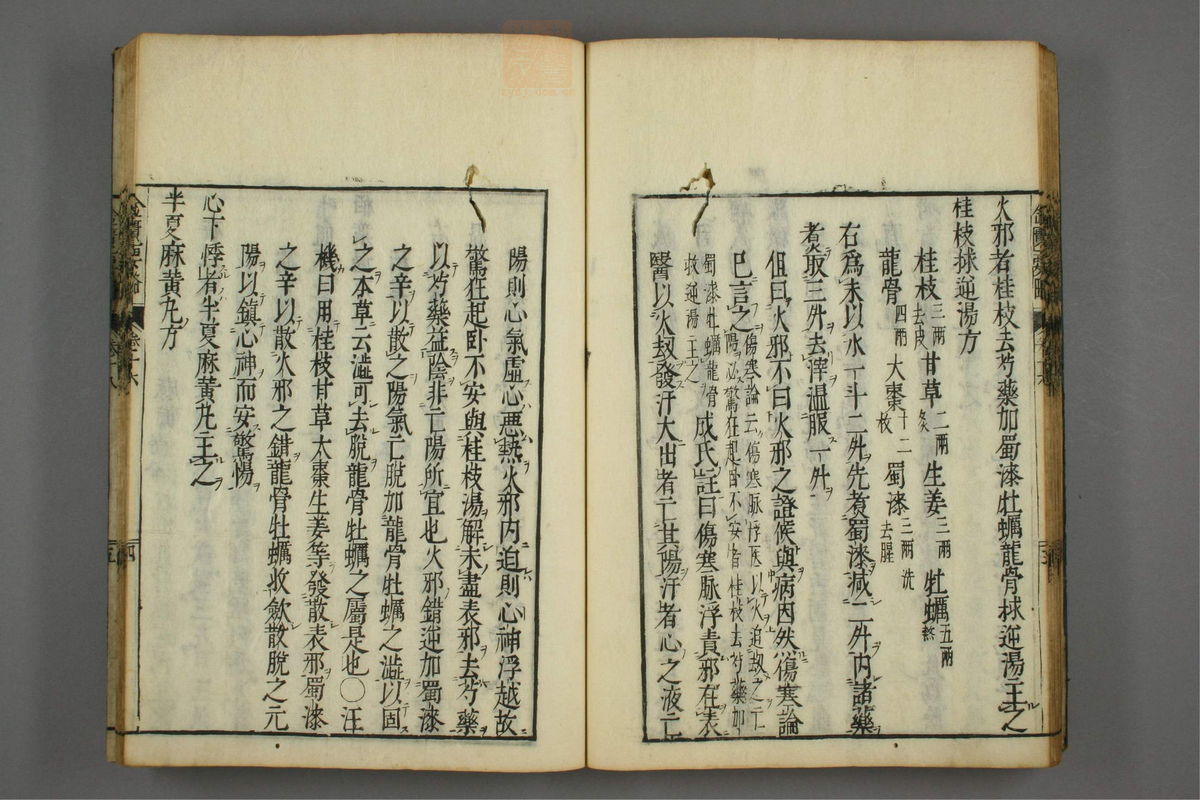 火邪者桂枝去芍藥加蜀漆牡蠣龍骨捄逆湯主之
桂枝捄逆湯方
桂枝三兩去皮 甘草二兩炙 生姜三兩 牡蠣五兩熬
龍骨四兩 大棗十二枚 蜀漆三兩洗去腥
右為末以水一斗二升先煑蜀漆減二升内諸藥
煑取三升去滓温服一升
但曰火邪不曰火邪之證候與病因然傷寒論
巳言之傷寒論云傷寒脉浮医以火迫劫之亡
陽必驚狂起卧不安者桂枝去芍藥加
蜀漆牡蠣龍骨
救逆湯主之
成氏註曰傷寒脉浮責邪在表
醫以火刼發汗大出者亡其陽汗者心之液亡
陽則心氣虛心惡熱火邪内迫則心神浮越故
驚狂起卧不安與桂枝湯解未盡表邪去芍藥
以芍藥益陰非亡陽所宜也火邪錯逆加蜀漆
之辛以散之陽氣亡脫加龍骨牡蠣之澁以固
之本草云澁可去脫龍骨牡蠣之屬是也○汪
機曰用桂枝甘草大棗生姜等發散表邪蜀漆
之辛以散火邪之錯龍骨牡蠣收歛散脫之元
陽以鎮心神而安驚惕
心下悸者半夏麻黄丸主之
半夏麻黄丸方